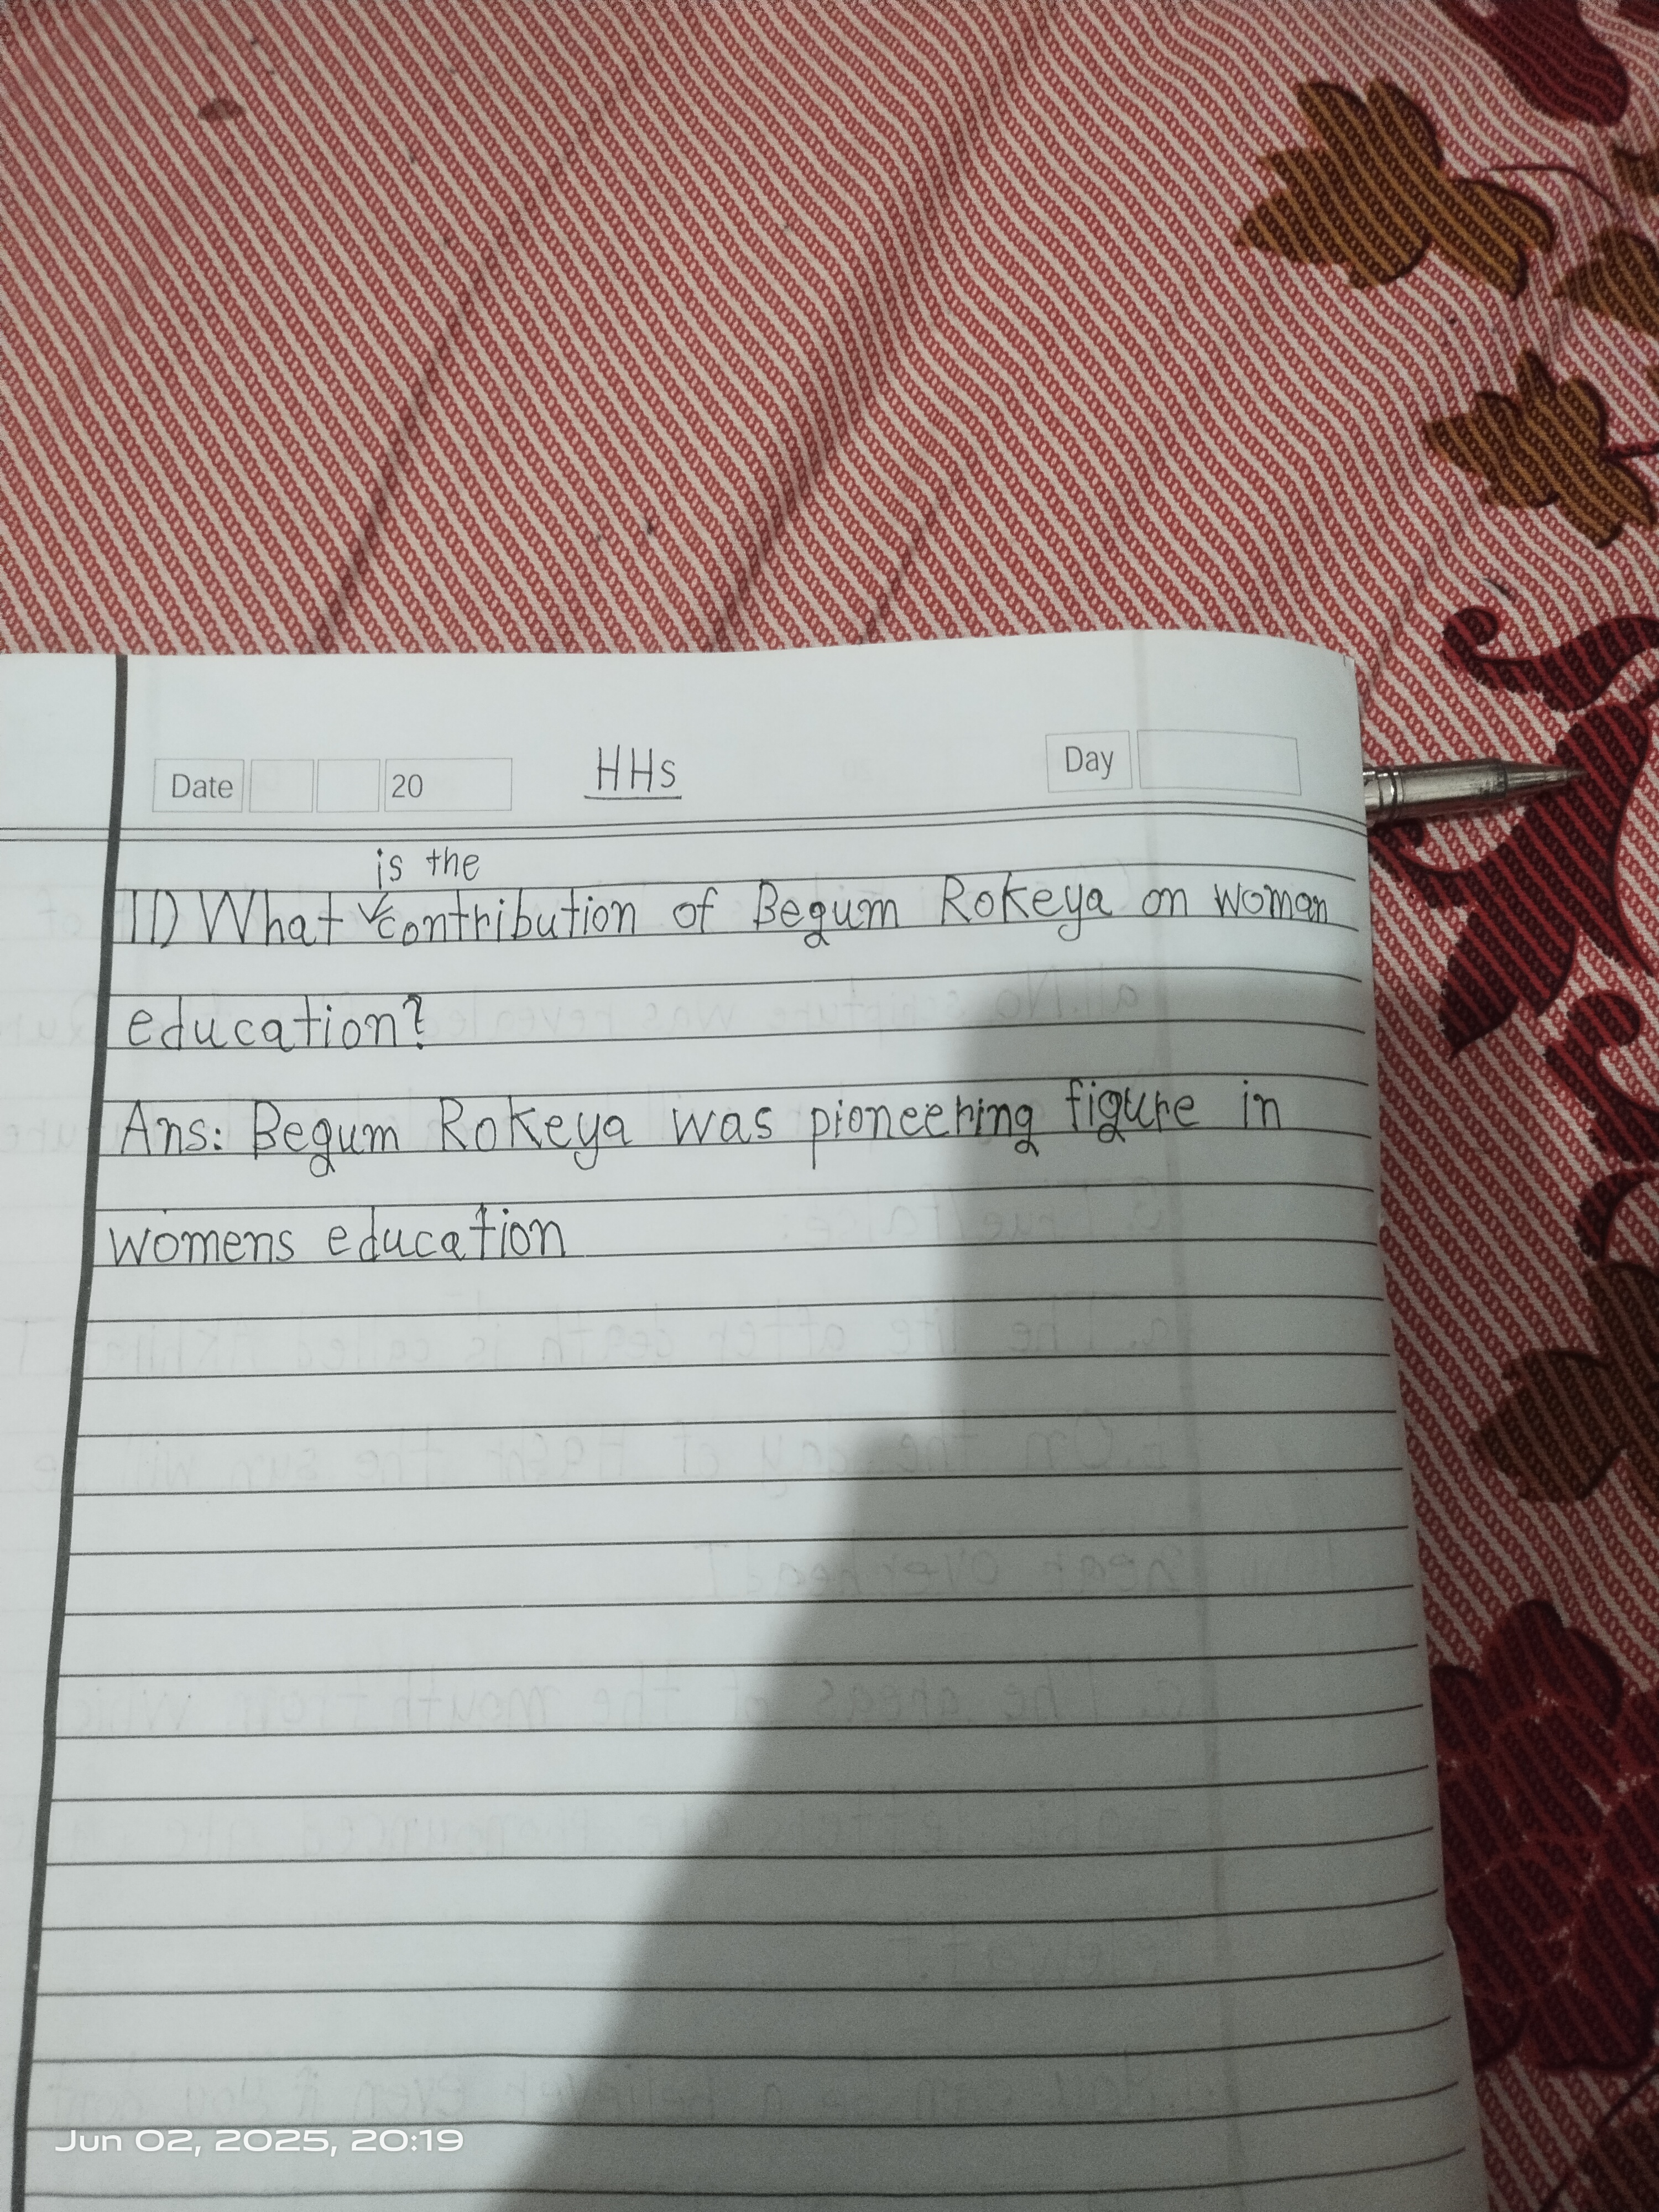 Date 20 HHs Day
is the
11) What contribution of Begum Rokeya on woman
education?
Ans: Begum Rokeya was pioneering figure in
womens education
Jun 02, 2025, 20:19